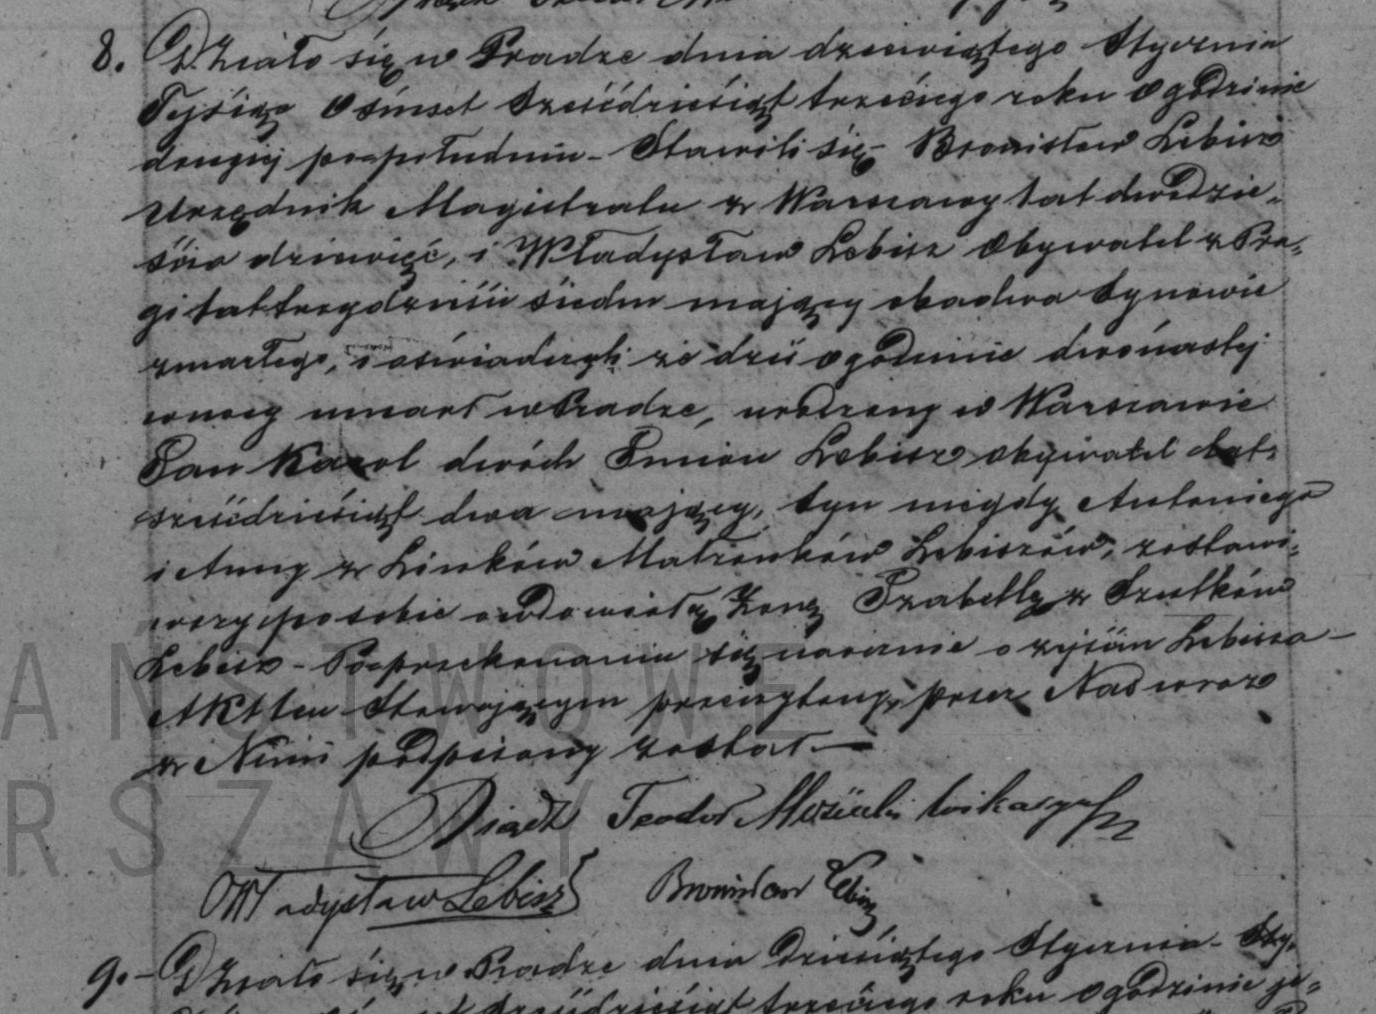 8. Działo się w Pradze dnia dziewiątego Stycznia
Tysiąc Ośmset Sześćdziesiąt trzeciego roku o godzinie
drugiej po południu – Stawili się Bronisław Lebisz
Urzędnik Magistratu z Warszawy lat dwadzie-
ścia dziewięć, i Władysław Lebisz Obywatel z Pra-
gi lat trzydzieści siedm mający obadwa Synowie
zmarłego, i oświadczyli że dziś o godzinie dwónastej
w nocy umarł w Pradze, urodzony w Warszawie
Jan Karol dwóch Imion Lebisz obywatel lat
sześćdziesiąt dwa mający, Syn niegdy Antoniego
i Anny z Małżonków Lebiszów, zostawi-
wszy po sobie owdowiałą Żonę Izabellę z
Lebisz – Po przekonaniu się naocznie o zejściu Lebisza –
Akt ten Stawającym przeczytany, przez Nas wraz
z Nimi podpisany został –
Ksiądz Teodor wikaryusz
Władysław Lebisz Bronisław Lebisz
9. – Działo się w Pradze dnia Dziesiątego Stycznia – Ty-
sześćdziesiąt trzeciego roku o godzinie je-
PAŃSTWOWE
WARSZAWY